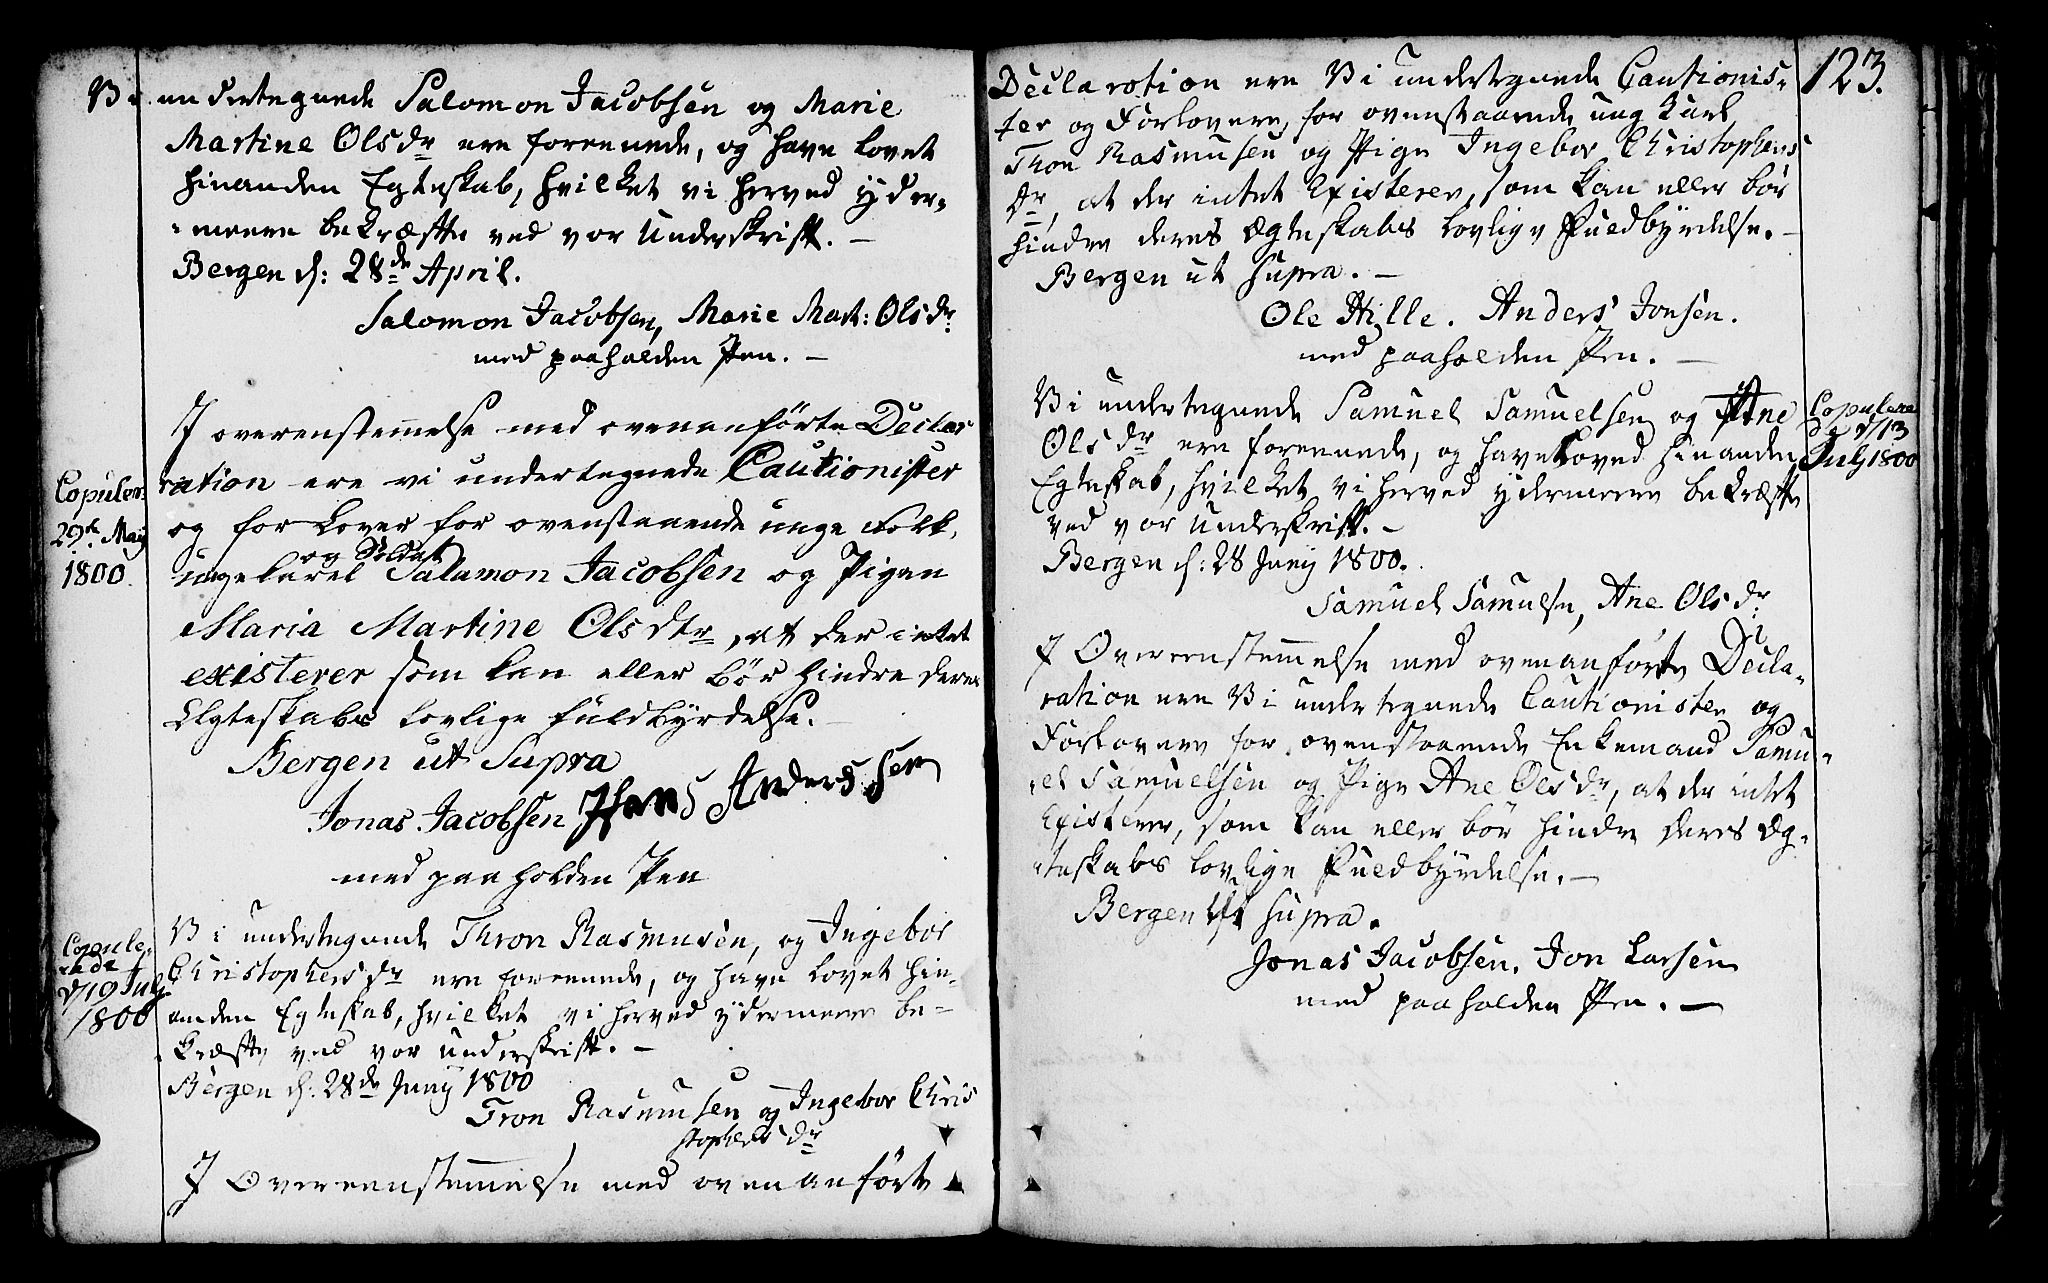 Vi undertegnede Salomon Jacobsen og Marie
Martine Olsdr ere foreenede, og have lovet
hinanden Egteskab, hvilket vi herved yder-
meere bekræfte ved vor Underskrift. –
Bergen d: 28de April.
Salomon Jacobsen, Marie Mart: Olsdr
med paaholden Pen. –
I overenstemelse med ovenanførte Decla-
Copuler: ration ere vi undertegnede Cautionister
29de May og forLover for ovenstaaende unge Folk,
1800. og Soldat
ungekarl Salamon Jacobsen og Pigen
Maria Martine Olsdtr, at der intet
existerer som kan eller bør hindre deres
Ægteskabs lovlige fuldbyrdelse. –
Bergen ut Supra
Jonas Jacobsen Hans Anderssen
med paaholden Pen
Copule- Vi undertegnede Thron Rasmusen, og Ingebor
rede Christophersdr ere foreenede, og have lovet hin-
d/19 July anden Egteskab, hvilket vi herved ydermeere be-
1800 kræfte ved vor underskrift. –
Bergen d: 28de Juny 1800
Tron Rasmusen og Ingebor Chris
stophersdr
I Overeenstemmelse med ovenanførte
123.
Declaration ere Vi undertegnede Cautionis-
ter og Forlovere, for ovenstaaende ung karl
Thron Rasmusen og Pige Ingebor Christophers
dr, at der intet Existerer, som kan eller bør
hindre deres Ægteskabs lovlige Fuldbyrdelse. –
Bergen ut supra. –
Ole Hille. Anders Jonsen.
med paaholden Pen. –
Vi undertegnede Samuel Samuelsen og Ane Copulere
Olsdr ere foreenede, og have Loved hinanden de d/13
Egteskab, hvilket vi herved ydermeere bekræfte July 1800
ved vor Underskrift. –
Bergen d: 28 Juny 1800.
Samuel Samulsen, Ane Olsdr
I Overeenstemmelse med ovenanførte Decla-
ration ere Vi undertegnede Cautionister og
Forlovere for ovenstaaende Enkemand Samu-
el Samuelsen og Pige Ane Olsdr, at der intet
Existerer, som kan eller bør hindre deres Æg-
teskabs lovlige Fuldbyrdelse. –
Bergen ut supra.
Jonas Jacobsen. Jon Larsen
med paaholden Pen. –